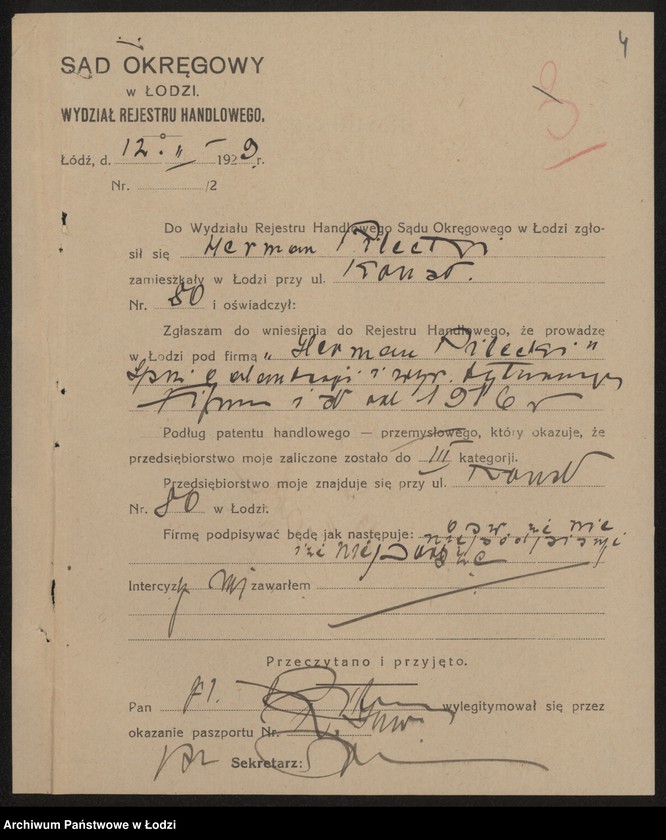 4
3
SĄD OKRĘGOWY
W ŁODZI.
WYDZIAŁ REJESTRU HANDLOWEGO.
Łódź, d. 12. II 1929 r.
Nr. /2
Do Wydziału Rejestru Handlowego Sądu Okręgowego w Łodzi zgło-
sił się Herman Pilecki
zamieszkały w Łodzi przy ul.
Nr. 80 i oświadczył:
Zgłaszam do wniesienia do Rejestru Handlowego, że prowadzę
w Łodzi pod firmą „Herman Pilecki"
i wyr. tytuniowych
od 1916 r
Podług patentu handlowego — przemysłowego, który okazuje, że
przedsiębiorstwo moje zaliczone zostało do III kategorji.
Przedsiębiorstwo moje znajduje się przy ul.
Nr. 80 w Łodzi.
Firmę podpisywać będę jak następuje:
Intercyzy nie zawarłem
Przeczytano i przyjęto.
Pan wylegitymował się przez
okazanie paszportu Nr.
Sekretarz:
Archiwum Państwowe w Łodzi